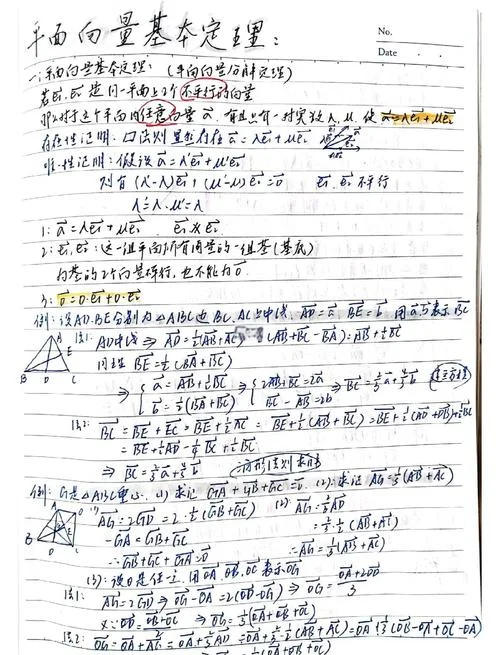 平面向量基本定理：
No.
Date
一、平面向量基本定理：（平面向量分解定理）
若e₁,e₂是同一平面上2个不平行的向量
那么对于这个平面内任意向量a，有且只有一对实数λ,μ，使a=λe₁+μe₂
存在性证明：□法则显然存在a=λe₁+μe₂
唯一性证明：假设a=λ'e₁+μ'e₂
则有(λ'-λ)e₁+(μ'-μ)e₂=0 e₁,e₂不平行
1: a=λe₁+μe₂ e₁∦e₂
2: e₁,e₂：这一组平面所有向量的一组基(基底)
为基的2个向量，也不能为0
3: 0=0·e₁+0·e₂
例：设AD,BE分别为△ABC边BC,AC上中线，AD=a BE=b 用a,b表示BC
法1: AD中线⇒AD=½(AB+AC) (AB+BC-BA)=AB+½BC
同理BE=½(BA+BC)
⇒{a=AB+½BC b=½(BA+BC) ⇒{2AB+BC=2a BC-AB=2b ⇒BC=⅔a+4/3b
法2: BC=BE+EC=BE+½AC=BE+½(AB+BC)=BE+½(AD+DB)+½BC
=BE+½AD-¼BC+½BC
⇒BC=⅔a+4/3b
例：G是△ABC重心. (1)求证GA+GB+GC=0 (2)求证AG=⅓(AB+AC)
(1) AG=2GD=2·½(GB+GC) (2): AG=⅔AD
-GA=GB+GC =⅔·½(AB+AC)
∴GB+GC+GA=0 ∴AG=⅓(AB+AC)
(3): 设O是任一，用OA,OB,OC表示OG
法1: AG=2GD⇒OG-OA=2(OD-OG)⇒OG=(OA+2OD)/3
又∵OD=(OB+OC)/2 ⇒OG=⅓(OA+OB+OC)
法2: OG=OA+AG=OA+⅔AD=OA+⅔·½(AB+AC)=OA+⅓(OB-OA+OC-OA)
=⅓(OA+OB+OC)